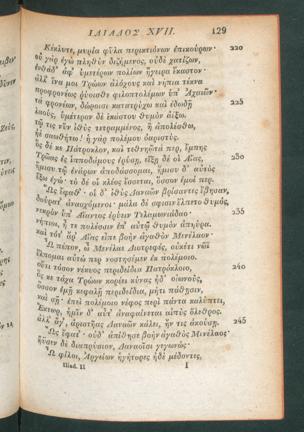 ΙΛΙΑΔΟΣ XVII. 129
Κέκλυτε, μυρία φῦλα περικτιόνων ἐπικούρων· 220
οὐ γὰρ ἐγὼ πληθὺν διζήμενος, οὐδὲ χατίζων,
ἐνθάδ' ἀφ' ὑμετέρων πολίων ἤγειρα ἕκαστον·
ἀλλ' ἵνα μοι Τρώων ἀλόχους καὶ νήπια τέκνα
προφρονέως ῥύοισθε φιλοπτολέμων ὑπ' Ἀχαιῶν·
τὰ φρονέων, δώροισι κατατρύχω καὶ ἐδωδῇ 225
λαούς, ὑμέτερον δὲ ἑκάστου θυμὸν ἀέξω.
τῷ τις νῦν ἰθὺς τετραμμένος, ἢ ἀπολέσθω,
ἠὲ σαωθήτω· ἣ γὰρ πολέμου ὀαριστύς.
ὃς δέ κε Πάτροκλον, καὶ τεθνηῶτά περ, ἔμπης
Τρῶας ἐς ἱπποδάμους ἐρύσῃ, εἴξῃ δέ οἱ Αἴας, 230
ἥμισυ τῷ ἐνάρων ἀποδάσσομαι, ἥμισυ δ' αὐτὸς
ἕξω ἐγώ· τὸ δέ οἱ κλέος ἔσσεται, ὅσσον ἐμοί περ.
Ὣς ἔφαθ'· οἱ δ' ἰθὺς Δαναῶν βρίσαντες ἔβησαν,
δούρατ' ἀνασχόμενοι· μάλα δέ σφισιν ἔλπετο θυμός,
νεκρὸν ὑπ' Αἴαντος ἐρύειν Τελαμωνιάδαο· 235
νήπιοι, ἦ τε πολέσσιν ἐπ' αὐτῷ θυμὸν ἀπηύρα.
καὶ τότ' ἄρ' Αἴας εἶπε βοὴν ἀγαθὸν Μενέλαον·
Ὦ πέπον, ὦ Μενέλαε Διοτρεφές, οὐκέτι νῶϊ
ἔλπομαι αὐτώ περ νοστησέμεν ἐκ πολέμοιο.
οὔτι τόσον νέκυος περιδείδια Πατρόκλοιο, 240
ὅς κε τάχα Τρώων κορέει κύνας ἠδ' οἰωνούς,
ὅσσον ἐμῇ κεφαλῇ περιδείδια, μήτι πάθῃσιν,
καὶ σῇ· ἐπεὶ πολέμοιο νέφος περὶ πάντα καλύπτει,
Ἕκτωρ, ἡμῖν δ' αὖτ' ἀναφαίνεται αἰπὺς ὄλεθρος.
ἀλλ' ἄγ', ἀριστῆας Δαναῶν κάλει, ἤν τις ἀκούσῃ. 245
Ὣς ἔφατ'· οὐδ' ἀπίθησε βοὴν ἀγαθὸς Μενέλαος·
ἤϋσεν δὲ διαπρύσιον, Δαναοῖσι γεγωνώς·
Ὦ φίλοι, Ἀργείων ἡγήτορες ἠδὲ μέδοντες,
Iliad. II I